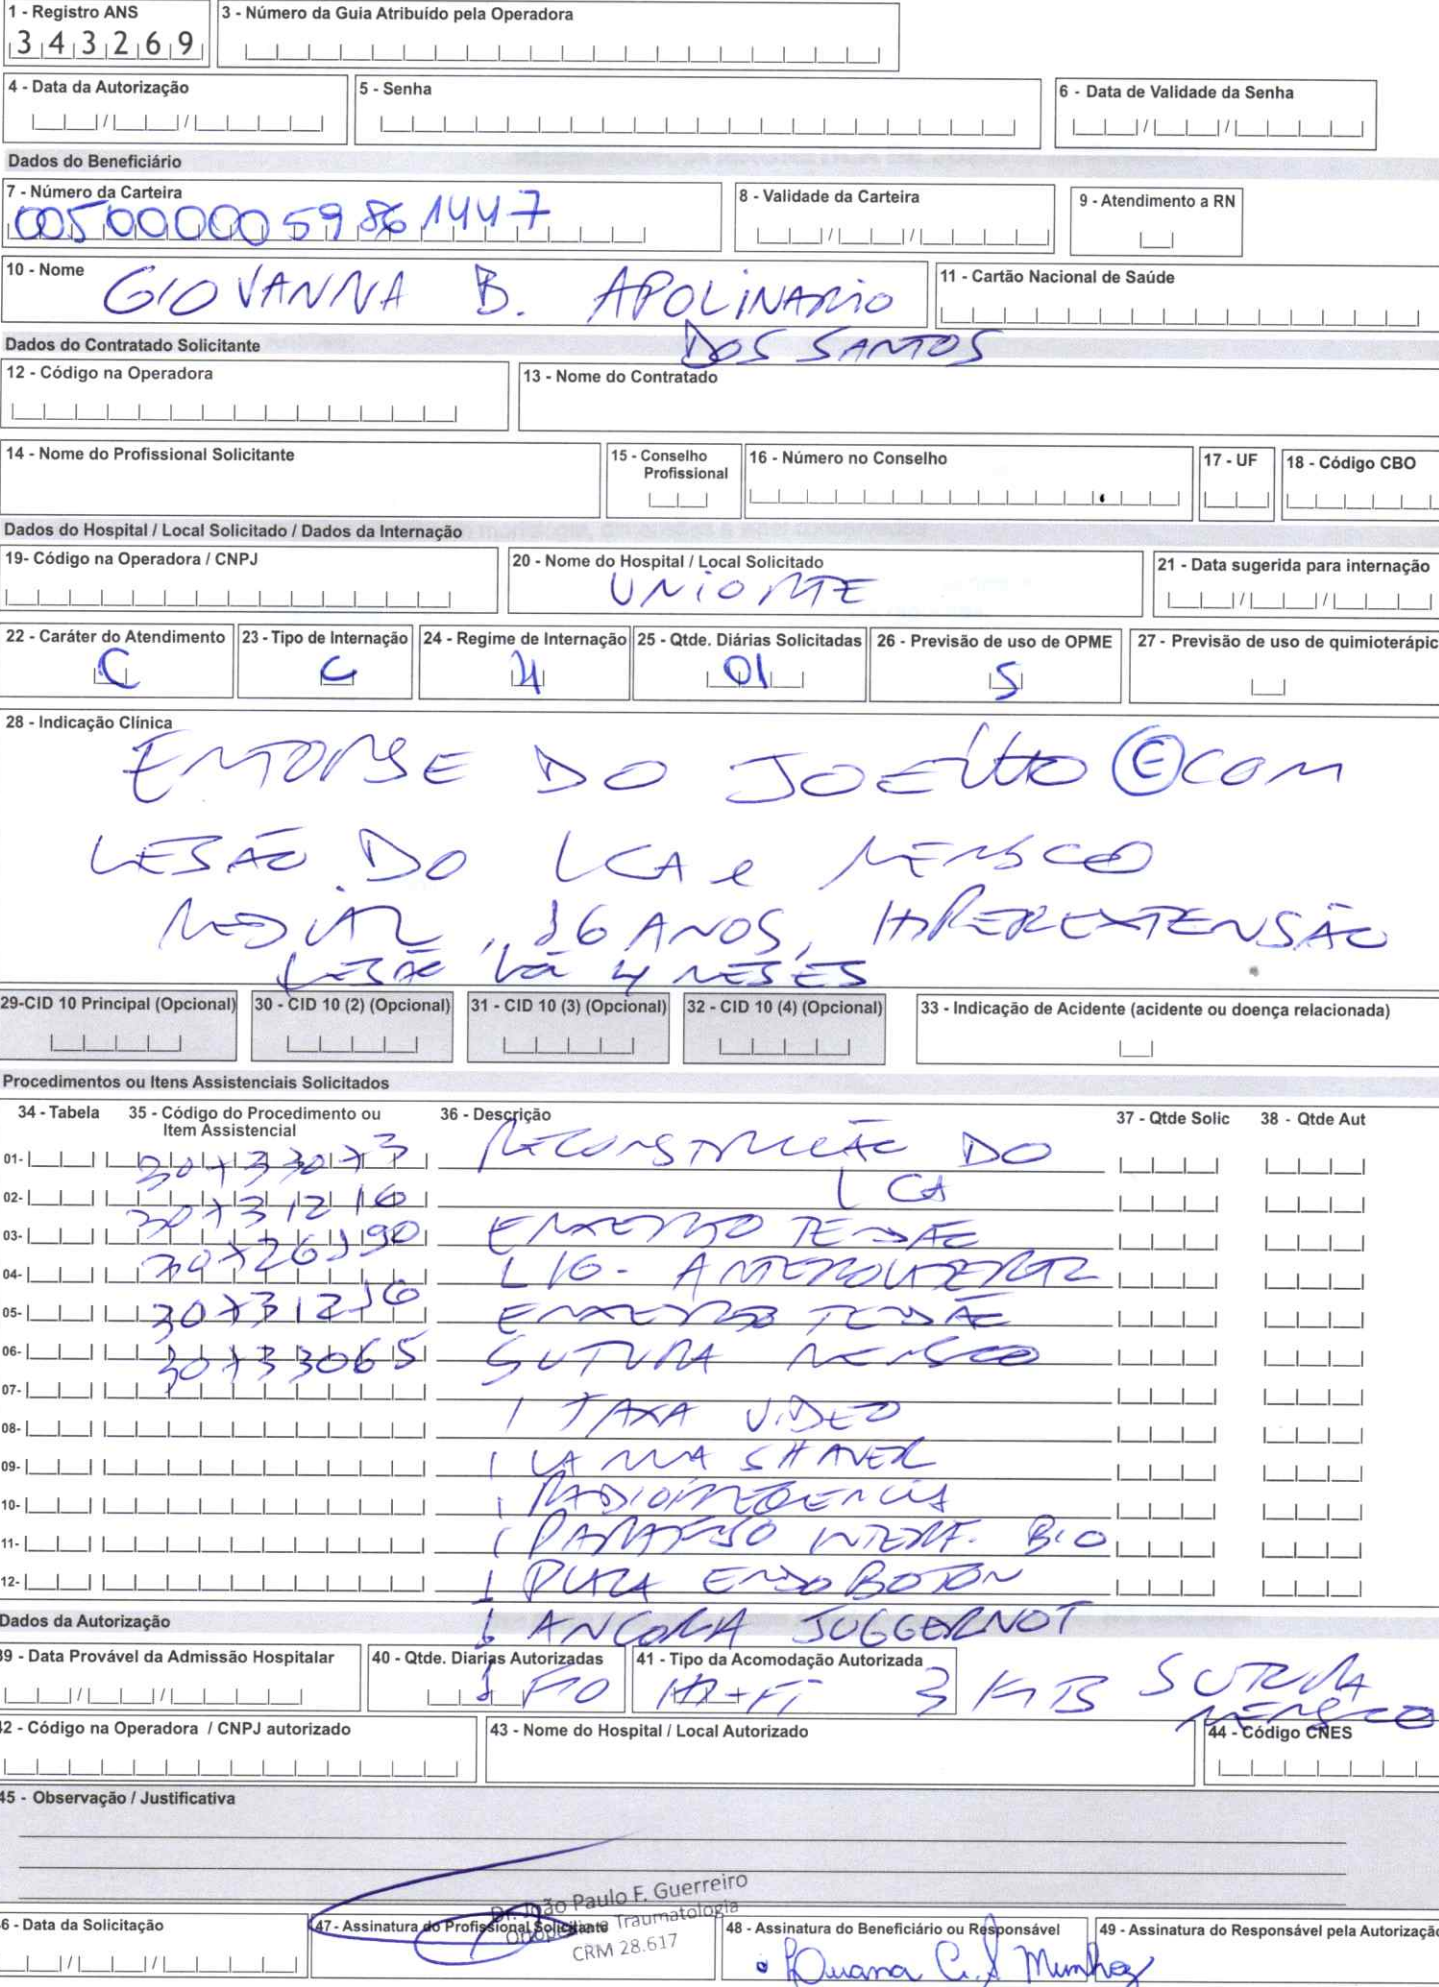 1 - Registro ANS
343269
3 - Número da Guia Atribuído pela Operadora
4 - Data da Autorização
5 - Senha
6 - Data de Validade da Senha
Dados do Beneficiário
7 - Número da Carteira
0050000059861447
8 - Validade da Carteira
9 - Atendimento a RN
10 - Nome
GIOVANNA B. APOLINARIO
DOS SANTOS
11 - Cartão Nacional de Saúde
Dados do Contratado Solicitante
12 - Código na Operadora
13 - Nome do Contratado
14 - Nome do Profissional Solicitante
15 - Conselho Profissional
16 - Número no Conselho
17 - UF
18 - Código CBO
Dados do Hospital / Local Solicitado / Dados da Internação
19- Código na Operadora / CNPJ
20 - Nome do Hospital / Local Solicitado
UNIORTE
21 - Data sugerida para internação
22 - Caráter do Atendimento
C
23 - Tipo de Internação
C
24 - Regime de Internação
H
25 - Qtde. Diárias Solicitadas
01
26 - Previsão de uso de OPME
S
27 - Previsão de uso de quimioterápic
28 - Indicação Clínica
ENTORSE DO JOELHO (E) COM
LESÃO DO LCA e MENISCO
MEDIAL, 16 ANOS, HIPEREXTENSÃO
LESÃO há 4 MESES
29-CID 10 Principal (Opcional)
30 - CID 10 (2) (Opcional)
31 - CID 10 (3) (Opcional)
32 - CID 10 (4) (Opcional)
33 - Indicação de Acidente (acidente ou doença relacionada)
Procedimentos ou Itens Assistenciais Solicitados
34 - Tabela
35 - Código do Procedimento ou Item Assistencial
36 - Descrição
37 - Qtde Solic
38 - Qtde Aut
01- 30733073 RECONSTRUÇÃO DO
02- 30731216 LCA
03- 30726190 ENXERTO TENDÃO
04- LIG. ANTEROLATERAL
05- 30731216 ENXERTO TENDÃO
06- 30733065 SUTURA MENISCO
07- 1 TAXA VIDEO
08-
09- 1 LAMINA SHAVER
10- 1 RADIOFREQUENCIA
11- 1 PARAFUSO INTERF. BIO
12- 1 PLACA ENDOBOTON
ANCORA JUGGERNOT
Dados da Autorização
39 - Data Provável da Admissão Hospitalar
40 - Qtde. Diarias Autorizadas
41 - Tipo da Acomodação Autorizada
1 FIO HI-FI 3 KITS SUTURA
MENISCO
42 - Código na Operadora / CNPJ autorizado
43 - Nome do Hospital / Local Autorizado
44 - Código CNES
45 - Observação / Justificativa
46 - Data da Solicitação
47 - Assinatura do Profissional Solicitante
Dr. João Paulo F. Guerreiro
Ortopedia e Traumatologia
CRM 28.617
48 - Assinatura do Beneficiário ou Responsável
49 - Assinatura do Responsável pela Autorização